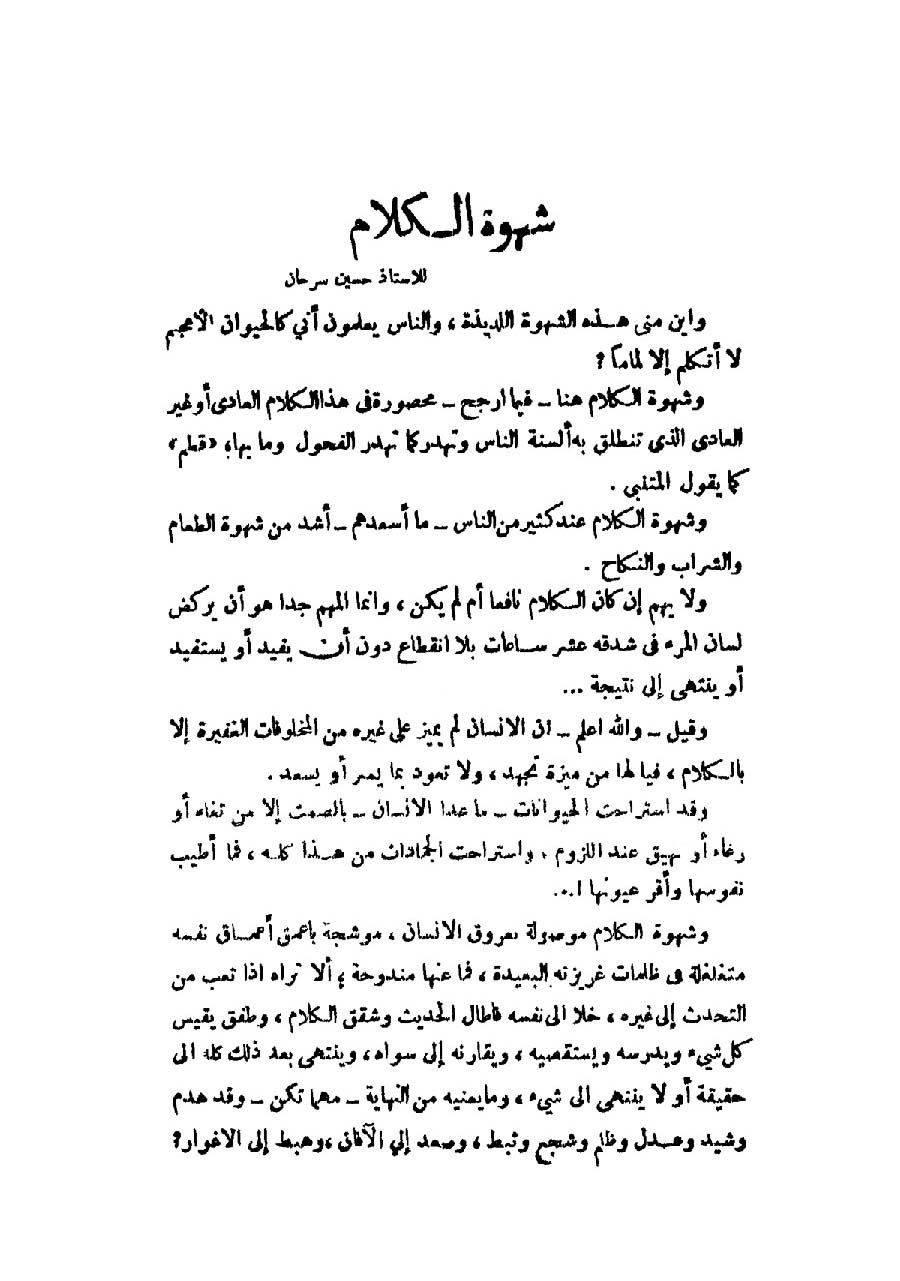 شهوة الكلام
للاستاذ حسين سرحان
واين منى هذه الشهوة اللذيذة ، والناس يعلمون أني كالحيوان الأعجم
لا أتكلم إلا لماماً ؟
وشهوة الكلام هنا - فيما ارجح - محصورة فى هذا الكلام العادى أو غير
العادى الذى تنطلق به ألسنة الناس وتهدر كما تهدر الفحول وما بها، «قطم»
كما يقول المتنبى .
وشهوة الكلام عند كثير من الناس - ما أسعدهم - أشد من شهوة الطعام
والشراب والنكاح .
ولا يهم إن كان الكلام نافعا أم لم يكن ، وانما المهم جدا هو أن يركض
لسان المرء فى شدقه عشر ساعات بلا انقطاع دون أن يفيد أو يستفيد
أو ينتهى إلى نتيجة ...
وقيل - والله اعلم - ان الانسان لم يميز على غيره من المخلوقات الغفيرة إلا
بالكلام ، فيا لها من ميزة تجهد ، ولا تعود بما يسر أو يسعد .
وقد استراحت الحيوانات - ما عدا الانسان - بالصمت إلا من ثغاء أو
رغاء أو نهيق عند اللزوم ، واستراحت الجمادات من هذا كله ، فما أطيب
نفوسها وأقر عيونها !...
وشهوة الكلام موصولة بعروق الانسان ، موشجة باعمق أعماق نفسه
متغلغلة فى ظلمات غريزته البعيدة ، فما عنها مندوحة ، ألا تراه اذا تعب من
التحدث إلى غيره ، خلا الى نفسه فاطال الحديث وشقق الكلام ، وطفق يقيس
كل شيء ويدرسه ويستقصيه ، ويقارنه إلى سواه ، وينتهى بعد ذلك كله الى
حقيقة أو لا ينتهى الى شيء ، وما يعنيه من النهاية - مهما تكن - وقد هدم
وشيد وعدل وظلم وشجع وثبط ، وصعد إلي الآفاق ، وهبط إلى الاغوار ؟